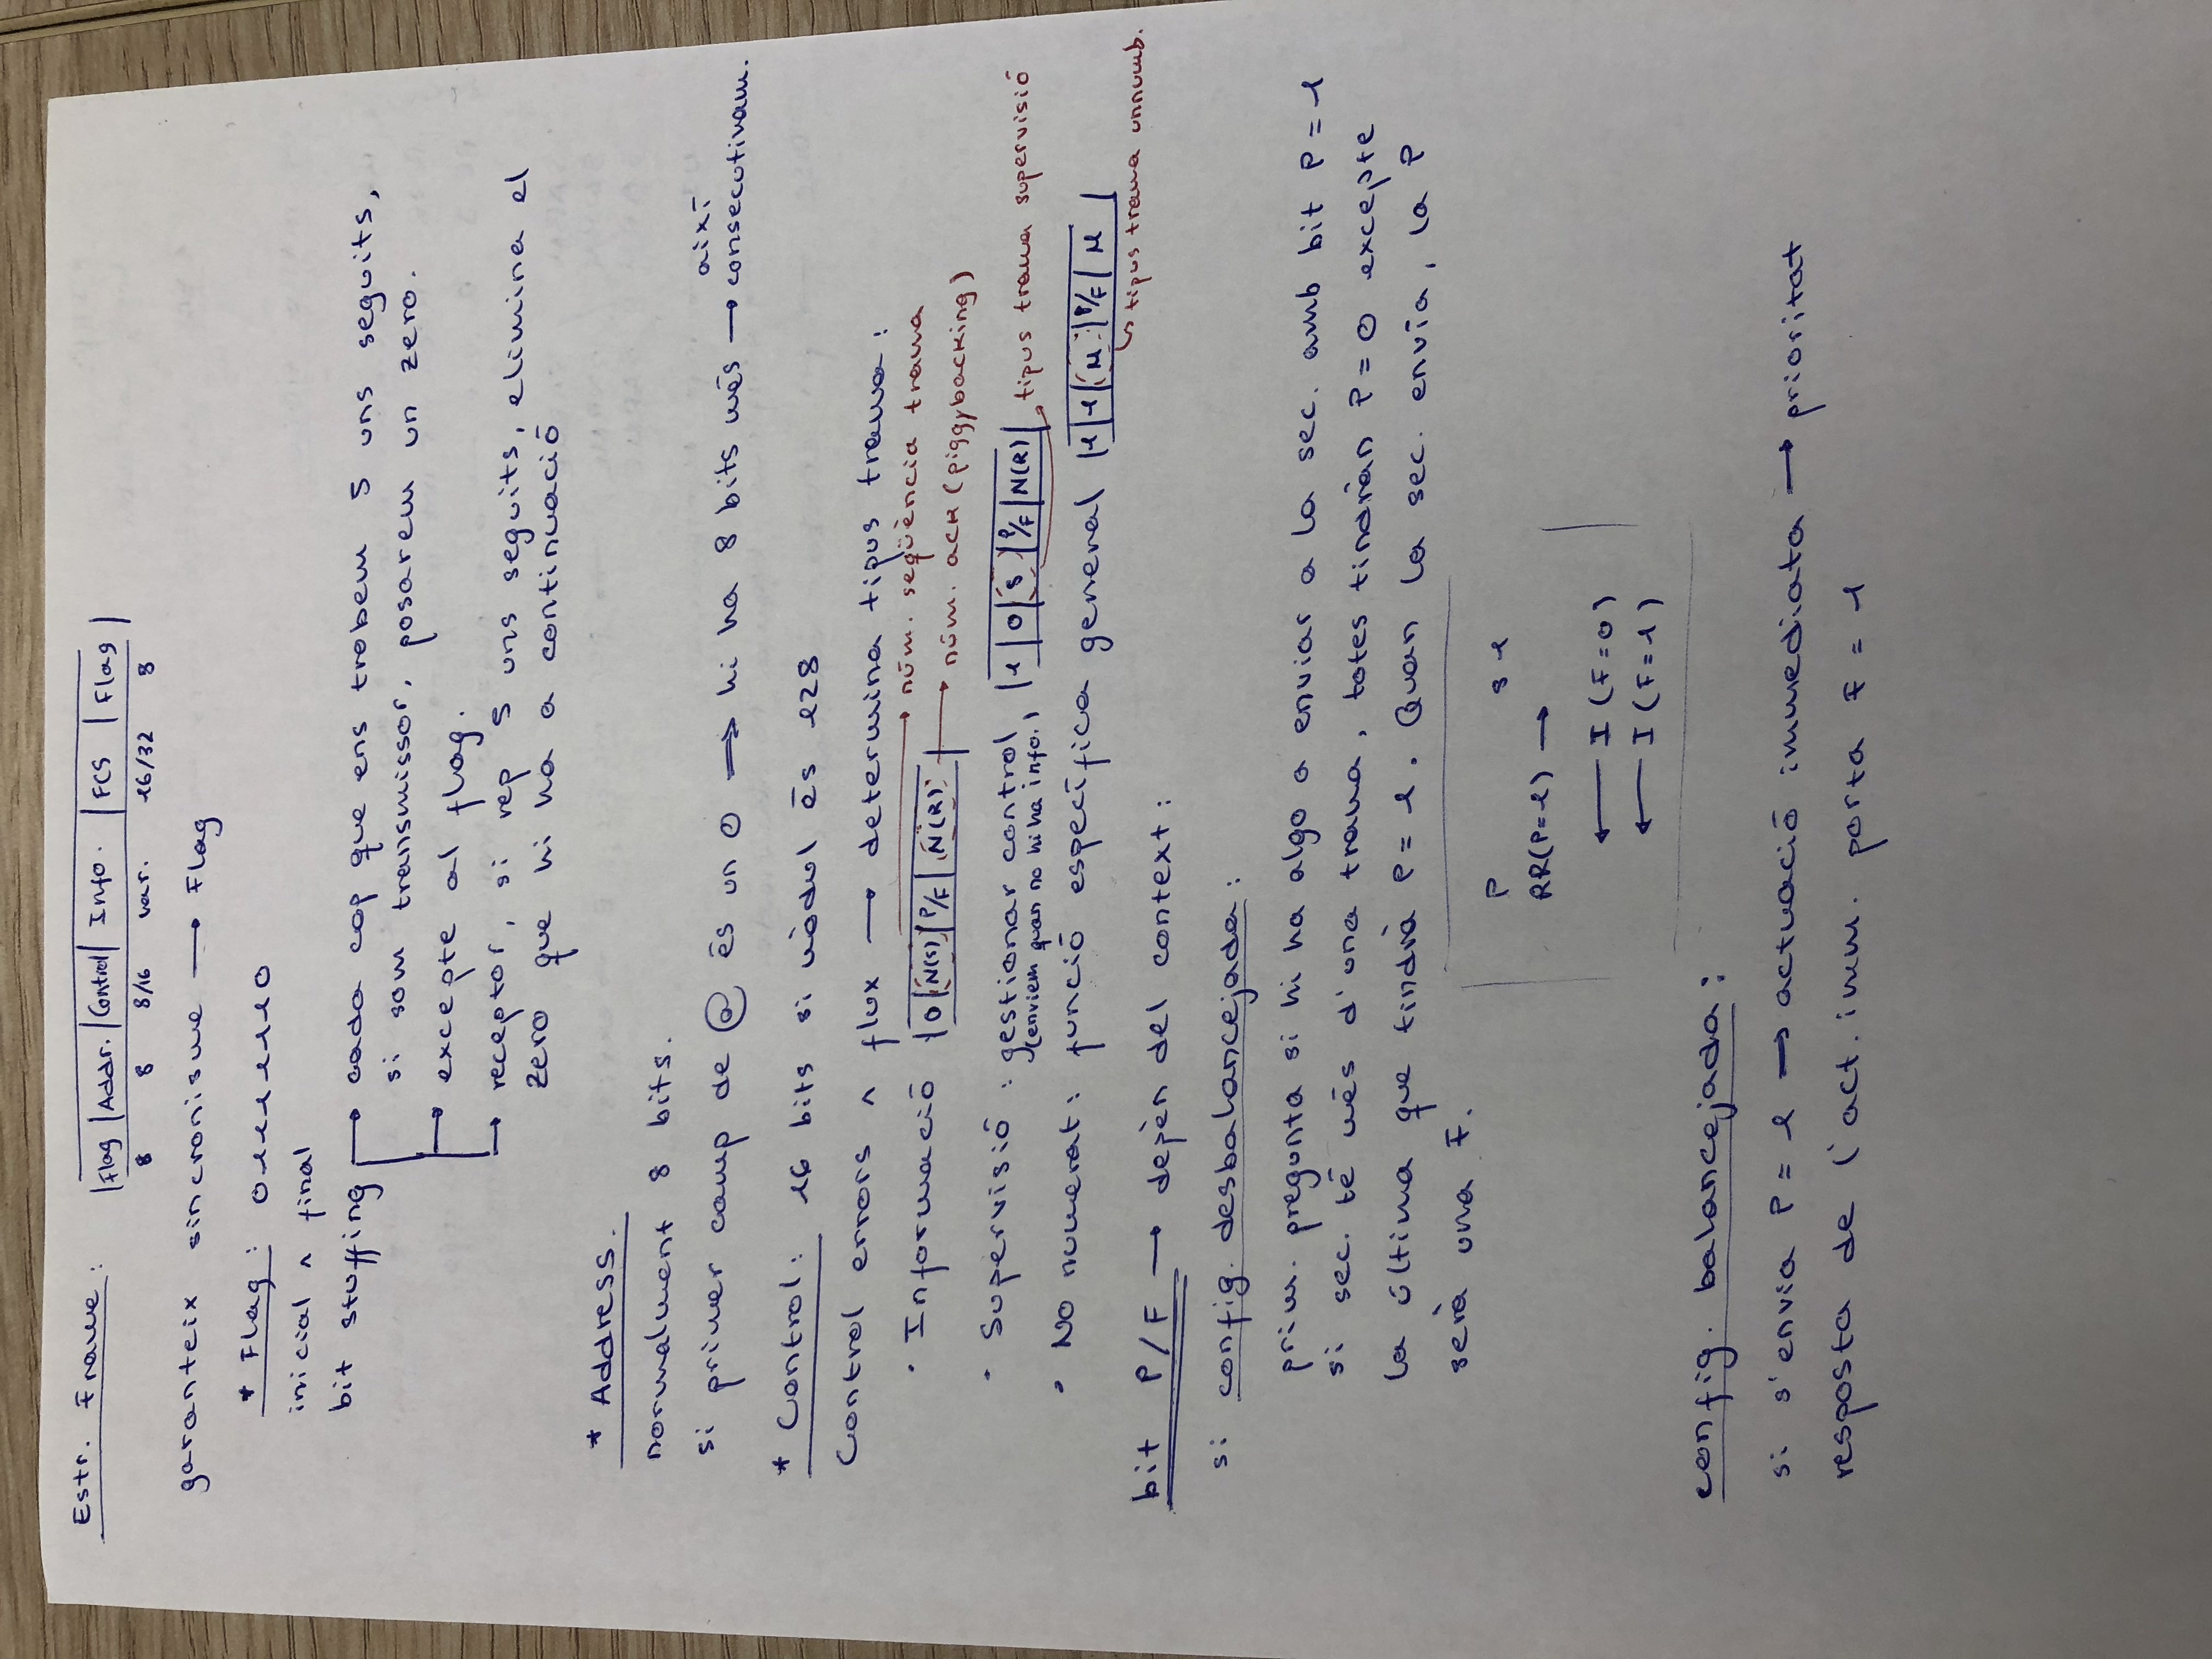 Estr. Frame: | Flag | Addr. | Control | Info. | FCS | Flag |
8 8 8/16 var. 16/32 8
garanteix sincronisme → Flag
* Flag: 01111110
inicial ∧ final
bit stuffing → cada cop que ens trobem 5 uns seguits,
si som transmissor, posarem un zero.
→ excepte al flag.
→ receptor, si rep 5 uns seguits, elimina el
zero que hi ha a continuació
* Address.
normalment 8 bits.
si primer camp de @ és un 0 ⇒ hi ha 8 bits més → així consecutivam.
* Control: 16 bits si mòdul és 128
Control errors ∧ flux → determina tipus trama:
· Informació | 0 | N(S) | P/F | N(R) | → núm. seqüència trama
→ núm. ack (piggybacking)
· Supervisió: gestionar control | 1 | 0 | S | P/F | N(R) | → tipus trama supervisió
(enviem quan no hi ha info.)
· No numerat: funció específica general | 1 | 1 | M | P/F | M |
↳ tipus trama unnumb.
bit P/F → depèn del context:
si config. desbalancejada:
prim. pregunta si hi ha algo a enviar a la sec. amb bit P = 1
si sec. té més d'una trama, totes tindràn P = 0 excepte
la última que tindrà P = 1. Quan la sec. envía, la P
serà una F.
P S1
RR(P=1) →
← I (F=0)
← I (F=1)
config. balancejada:
si s'envia P = 1 → actuació immediata → prioritat
resposta de l'act. imm. porta F = 1